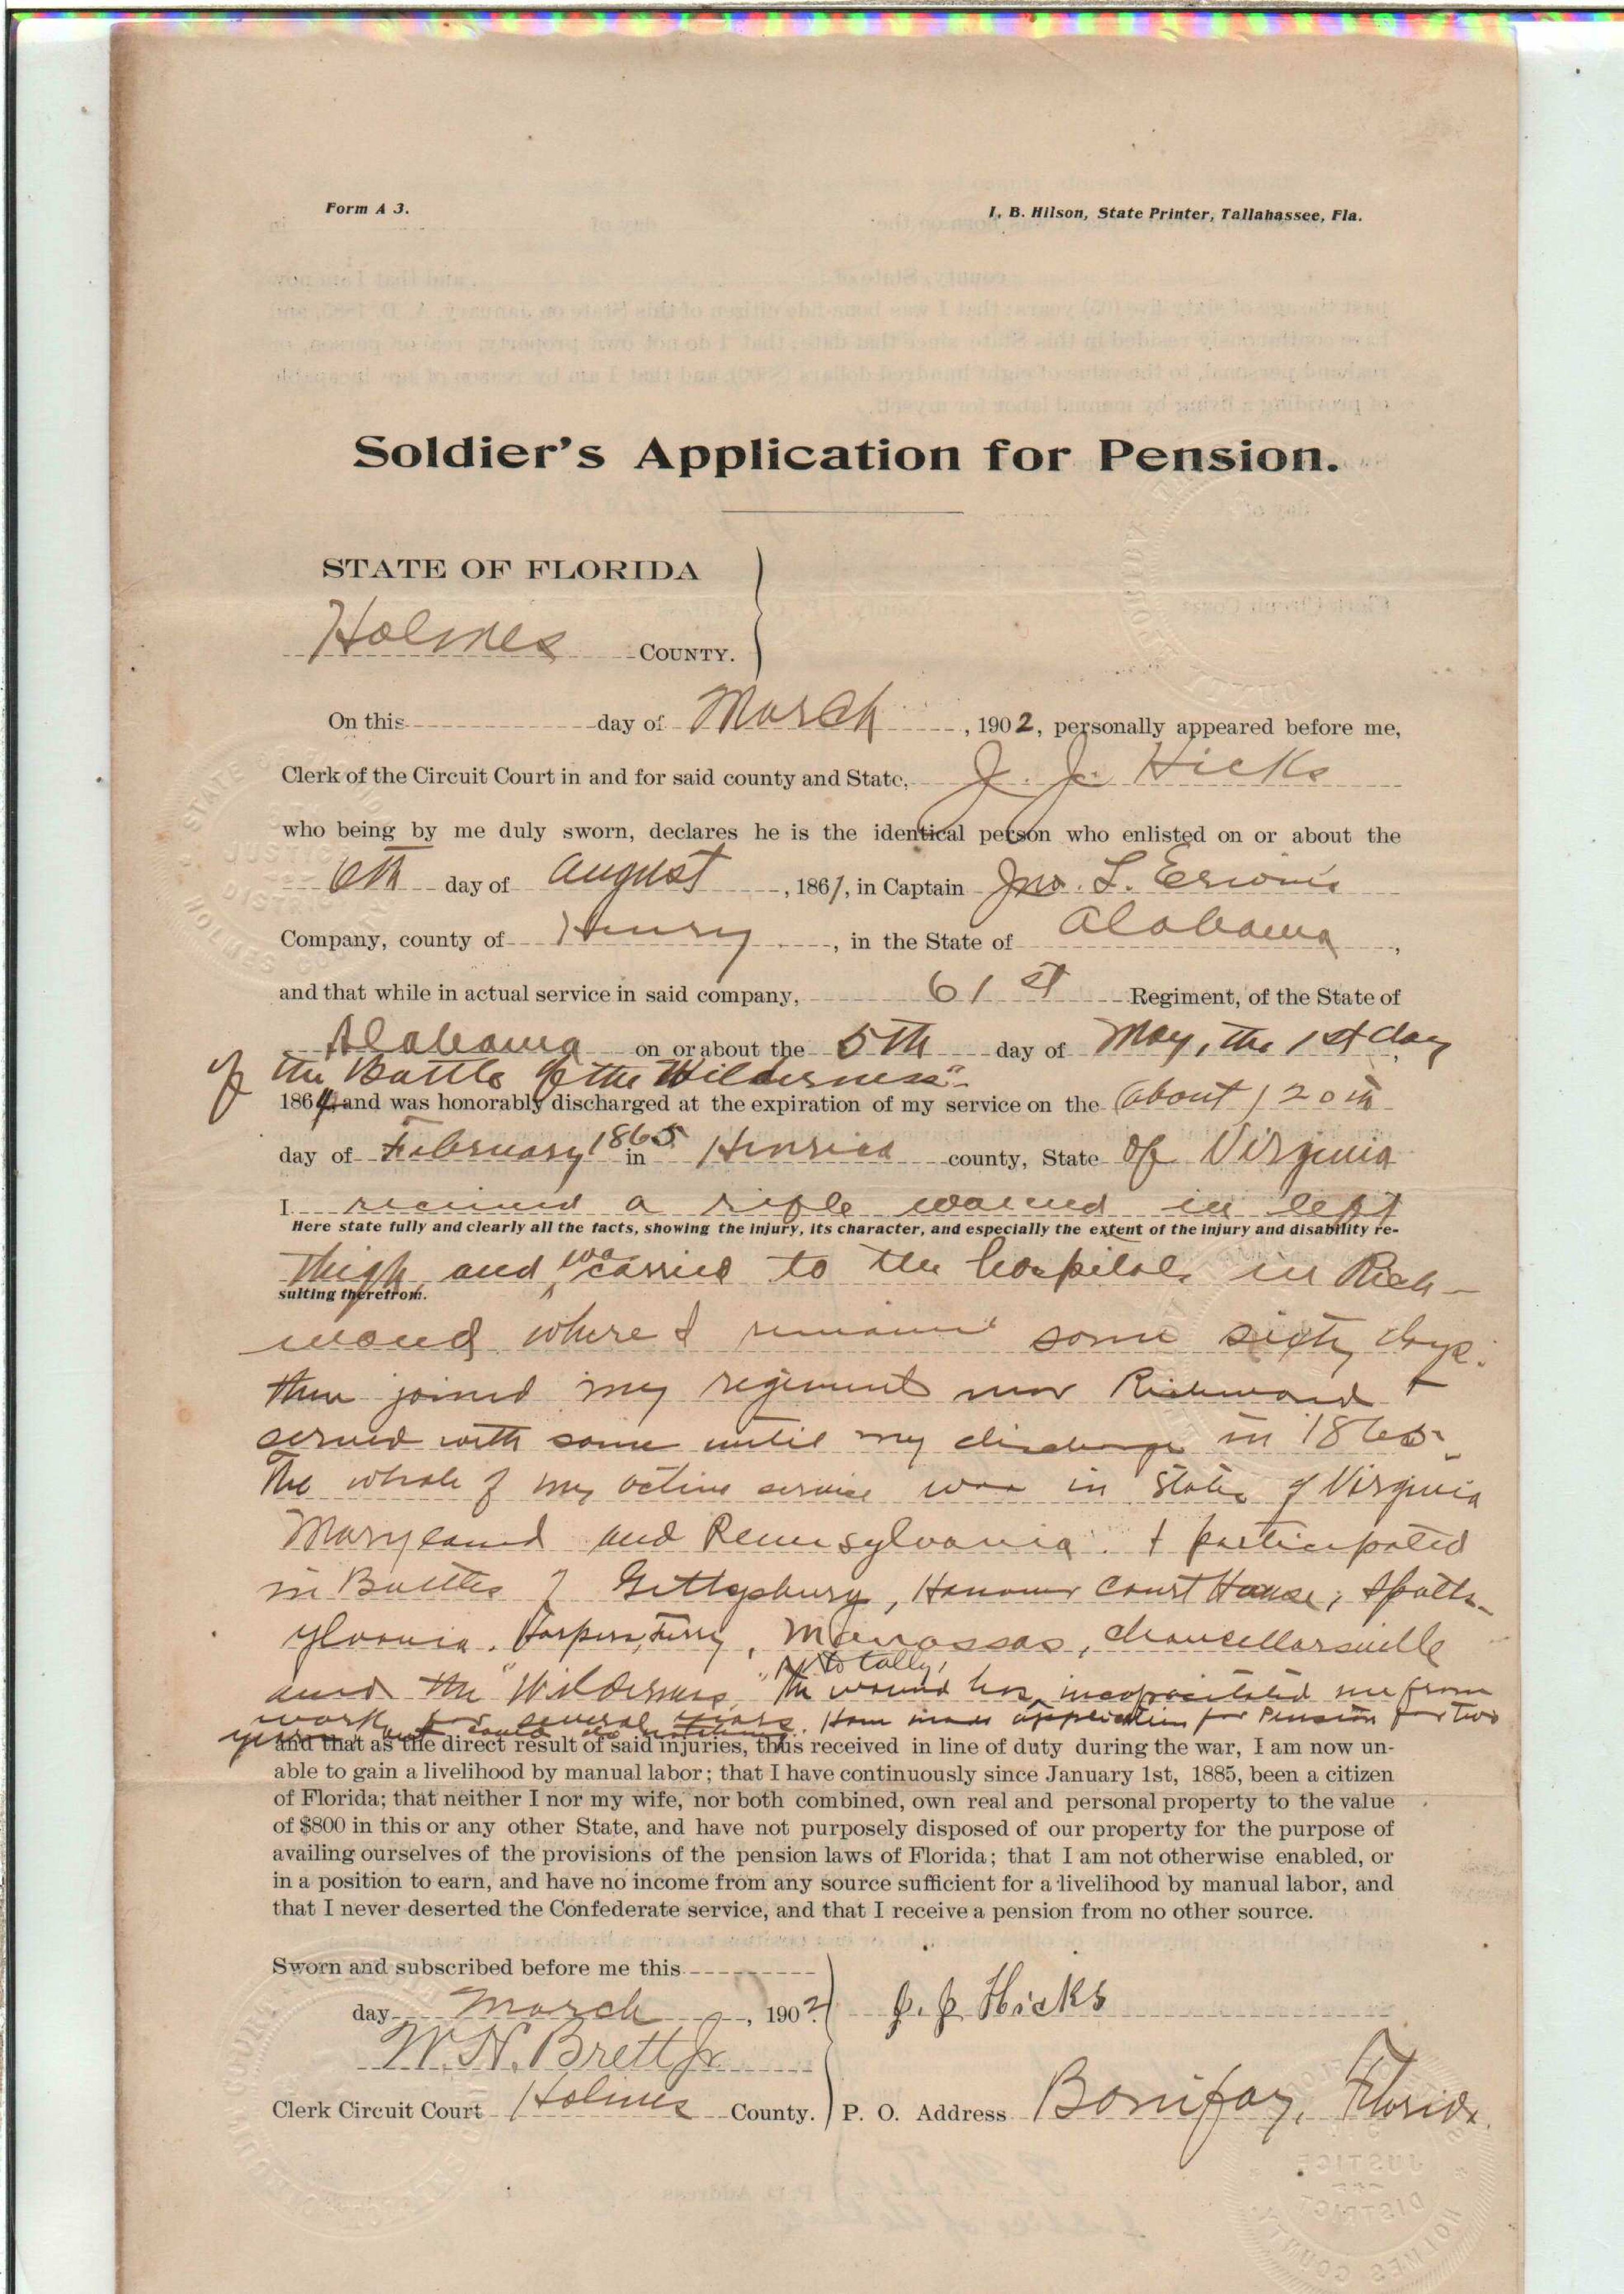 Form A 3.
I. B. Hilson, State Printer, Tallahassee, Fla.
Soldier's Application for Pension.
STATE OF FLORIDA
Holmes COUNTY.
On this day of March, 1902, personally appeared before me,
Clerk of the Circuit Court in and for said county and State, J. J. Hicks
who being by me duly sworn, declares he is the identical person who enlisted on or about the
6th day of August, 1861, in Captain Jno. L. Erwin's
Company, county of Henry, in the State of Alabama,
and that while in actual service in said company, 61st Regiment, of the State of
Alabama on or about the 5th day of May, the 1st day
of the Battle of the Wilderness"
1864 and was honorably discharged at the expiration of my service on the (about) 20th
day of February 1865 in Henrico county, State of Virginia
I received a rifle wound in left
Here state fully and clearly all the facts, showing the injury, its character, and especially the extent of the injury and disability re-
thigh and was carried to the hospital in Rich-
sulting therefrom.
mond where I remained some sixty days.
then joined my regiment near Richmond &
served with same until my discharge in 1865.
The whole of my active service was in State of Virginia
Maryland and Pennsylvania. I participated
in Battles of Gettysburg, Hanover Court House, Spotts-
ylvania, Harpers Ferry, Manassas, Chancellorsville
and the "Wilderness," The wound has totally incapacitated me from
work for several years. Have made application for Pension for two
years but could do nothing.
and that as the direct result of said injuries, thus received in line of duty during the war, I am now un-
able to gain a livelihood by manual labor; that I have continuously since January 1st, 1885, been a citizen
of Florida; that neither I nor my wife, nor both combined, own real and personal property to the value
of $800 in this or any other State, and have not purposely disposed of our property for the purpose of
availing ourselves of the provisions of the pension laws of Florida; that I am not otherwise enabled, or
in a position to earn, and have no income from any source sufficient for a livelihood by manual labor, and
that I never deserted the Confederate service, and that I receive a pension from no other source.
Sworn and subscribed before me this
day March, 1902. J. J. Hicks
W. H. Brett Jr
Clerk Circuit Court Holmes County. P. O. Address Bonifay, Florida